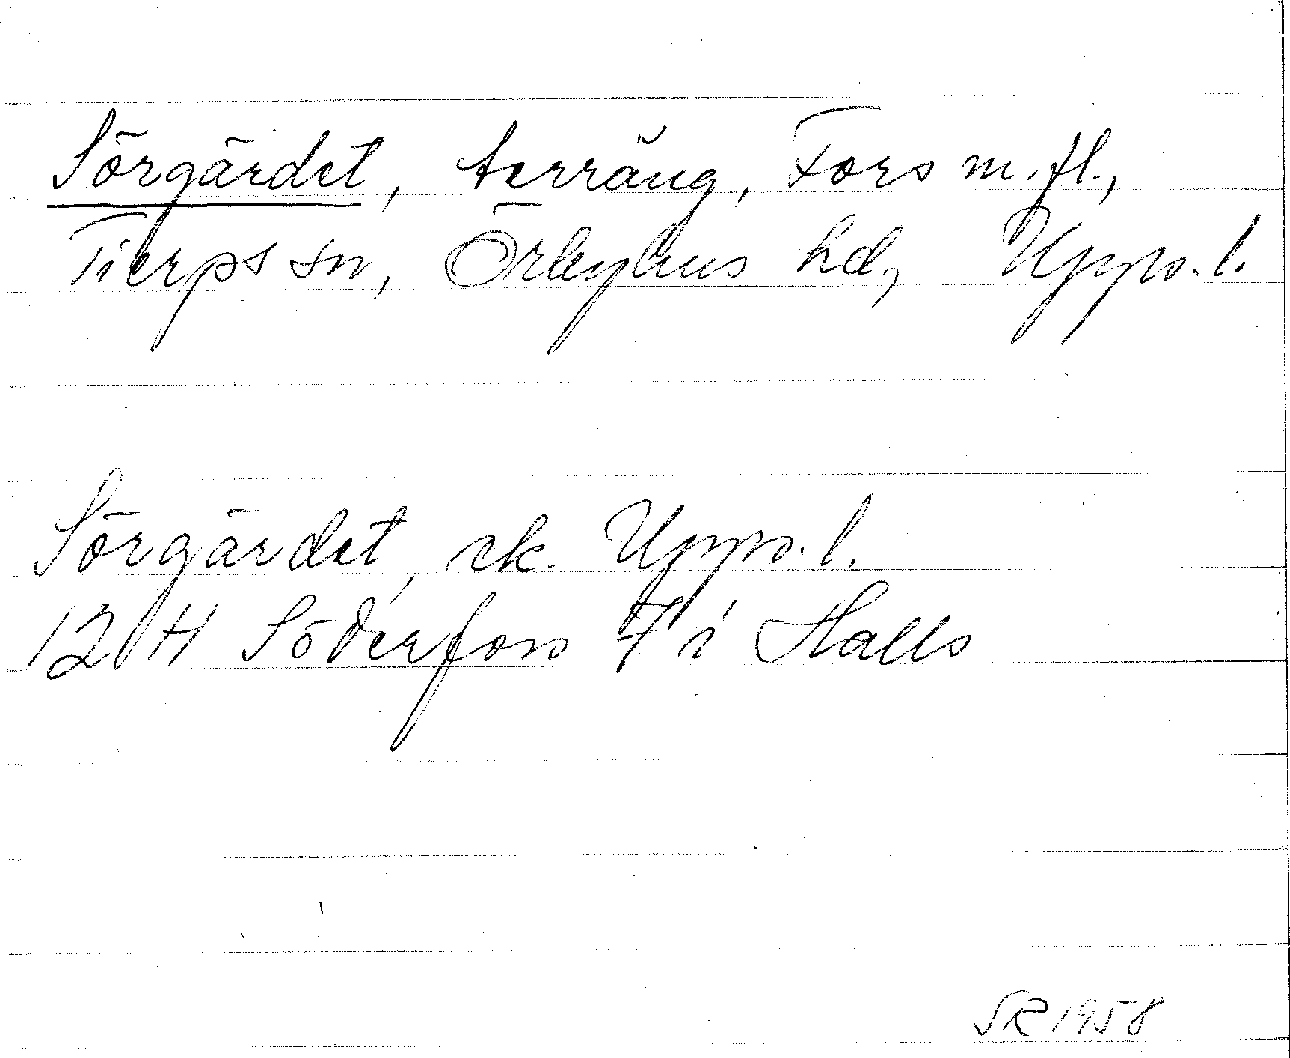 Sörgärdet, terräng, Fors m.fl.,
Tierps sn, Örbyhus hd, Upps. l.
Sörgärdet, ek. Upps. l.
12 H Söderfors 7 i Halls
SR 1958